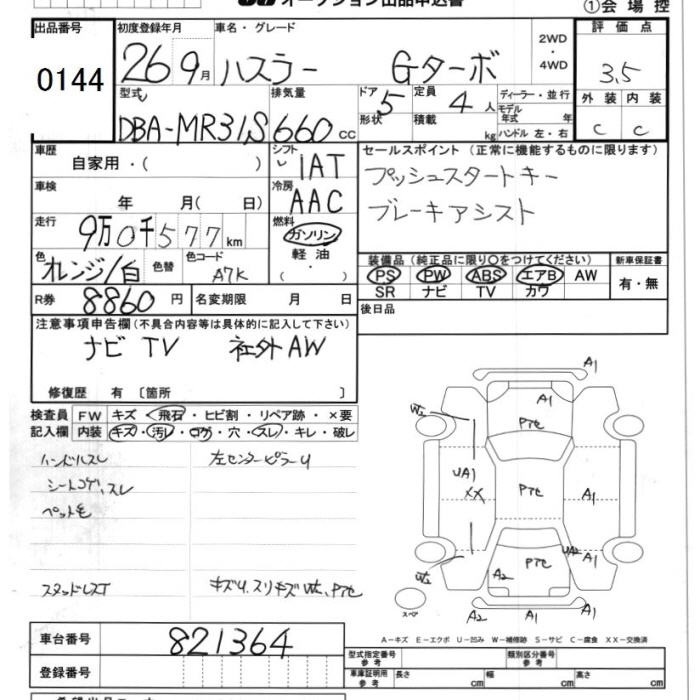 オークション出品申込書
①会場控
出品番号 0144
初度登録年月 26 9月
車名・グレード ハスラー Gターボ
2WD・4WD
評価点 3.5
外装 C 内装 C
型式 DBA-MR31S
排気量 660 cc
ドア形状 5
定員 4 人
積載 kg
ディーラー・並行
モデル年式 年
ハンドル 左・右
車歴 自家用・( )
シフト IAT
セールスポイント (正常に機能するものに限ります)
プッシュスタートキー
ブレーキアシスト
車検 年 月( 日)
冷房 AAC
走行 9万0千577km
燃料 ガソリン 軽油・( ・ )
色 オレンジ/白 色替 色コード A7K
装備品(純正品に限り○をつけてください)
PS PW ABS エアB AW
SR ナビ TV カワ
新車保証書 有・無
R券 8860円
名変期限 月 日
後日品
注意事項申告欄(不具合内容等は具体的に記入して下さい)
ナビ TV 社外AW
修復歴 有 〔箇所 〕
検査員記入欄
FW キズ・飛石・ヒビ割・リペア跡・×要
内装 キズ・汚レ・コゲ・穴・スレ・キレ・破レ
ハンドルスレ 左センターピラーU
シートコゲ、スレ
ペット毛
スタッドレスT キズU、スリキズ
A1
A1
P7セ
UA1
XX
P7セ
A1
A1
UA2
A2
P7セ
A2 A1 A1
スペア
A-キズ E-エクボ U-凹み W-補修跡 S-サビ C-腐食 XX-交換済
車台番号 821364
登録番号
型式指定番号 参考
類別区分番号 参考
車庫証明用 参考 長さ cm 幅 cm 高さ cm